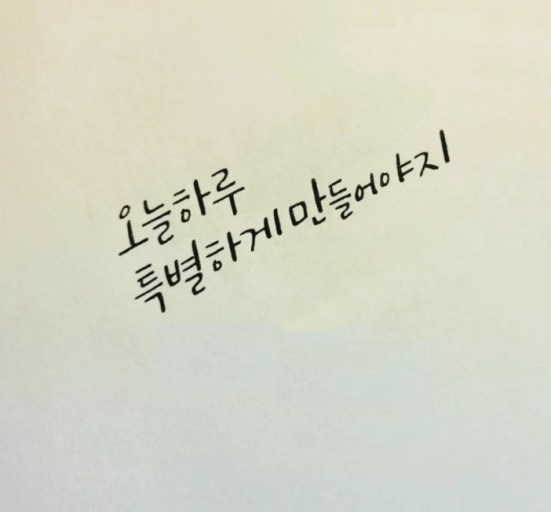 오늘하루
특별하게 만들어야지